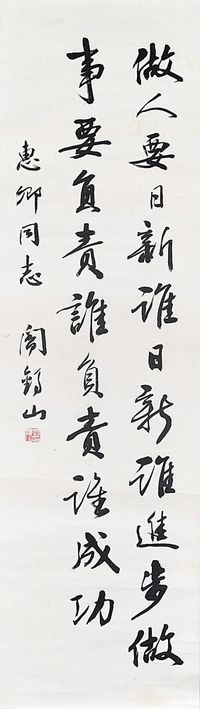 做人要日新誰日新誰進步做
事要負責誰負責誰成功
惠卿同志
閻錫山